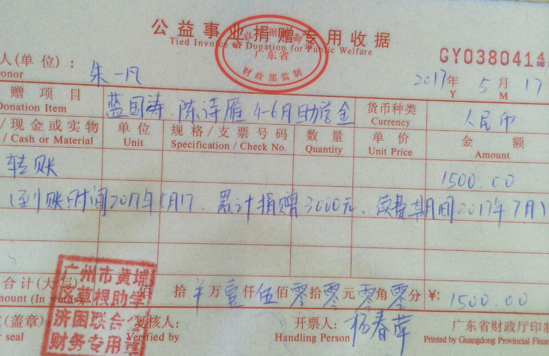 公益事业捐赠专用收据
Tied Invoice of Donation for Public Welfare
广东省
财政部监制
GY0380414
人(单位): 朱一凡
onor
2017年 5月 17
Y M
赠 项 目 蓝国涛、陈诗雁 4-6月助学金 货币种类 人民币
Donation Item Currency
/现金或实物 单位 规格/支票号码 数量 单价 金额
/ Cash or Material Unit Specification / Check No. Quantity Unit Price Amount
转账 1500.00
(到账时间2017年5月17. 累计捐赠3000元. 续费期间2017年7月1
合计(大写) 拾 万壹仟伍佰零拾零元零角零分 ¥: 1500.00
mount (In words)
广州市黄埔
区草根助学
济困联合会
财务专用章
(盖章) 复核人: 开票人: 杨春萍 广东省财政厅印
Verifier Handling Person Printed by Guangdong Provincial Finan